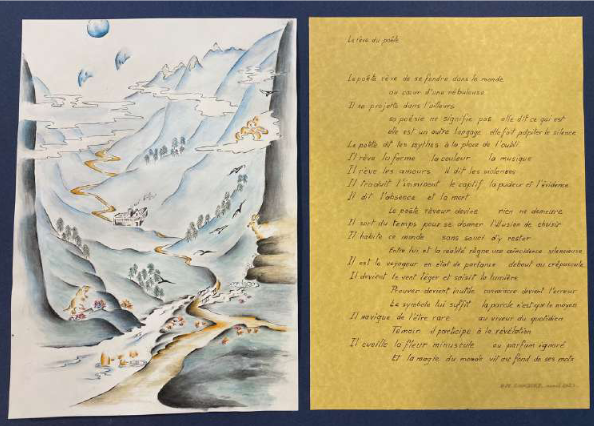 Le rêve du poète
Le poète rêve de se fondre dans le monde
au cœur d'une nébuleuse
Il se projette dans l'ailleurs
sa poésie ne signifie pas elle dit ce qui est
elle est un autre langage elle fait palpiter le silence
Le poète dit les mythes à la place de l'oubli
Il rêve la forme la couleur la musique
Il rêve les amours il dit les violences
Il traduit l'imminent le captif la pudeur et l'évidence
Il dit l'absence et la mort
Le poète rêveur devine rien ne demeure
Il sort du temps pour se donner l'illusion de choisir
Il habite ce monde sans savoir s'y rester
Entre lui et la réalité règne une coïncidence silencieuse
Il est le voyageur en état de partance debout au crépuscule
Il devient le vent léger et saisit la lumière
Prouver devient inutile convaincre devient l'erreur
Le symbole lui suffit la parole n'est que le moyen
Il navigue de l'être rare au viveur du quotidien
Témoin il participe à la révélation
Il cueille la fleur minuscule au parfum ignoré
Et la magie du monde vit au fond de ses mots